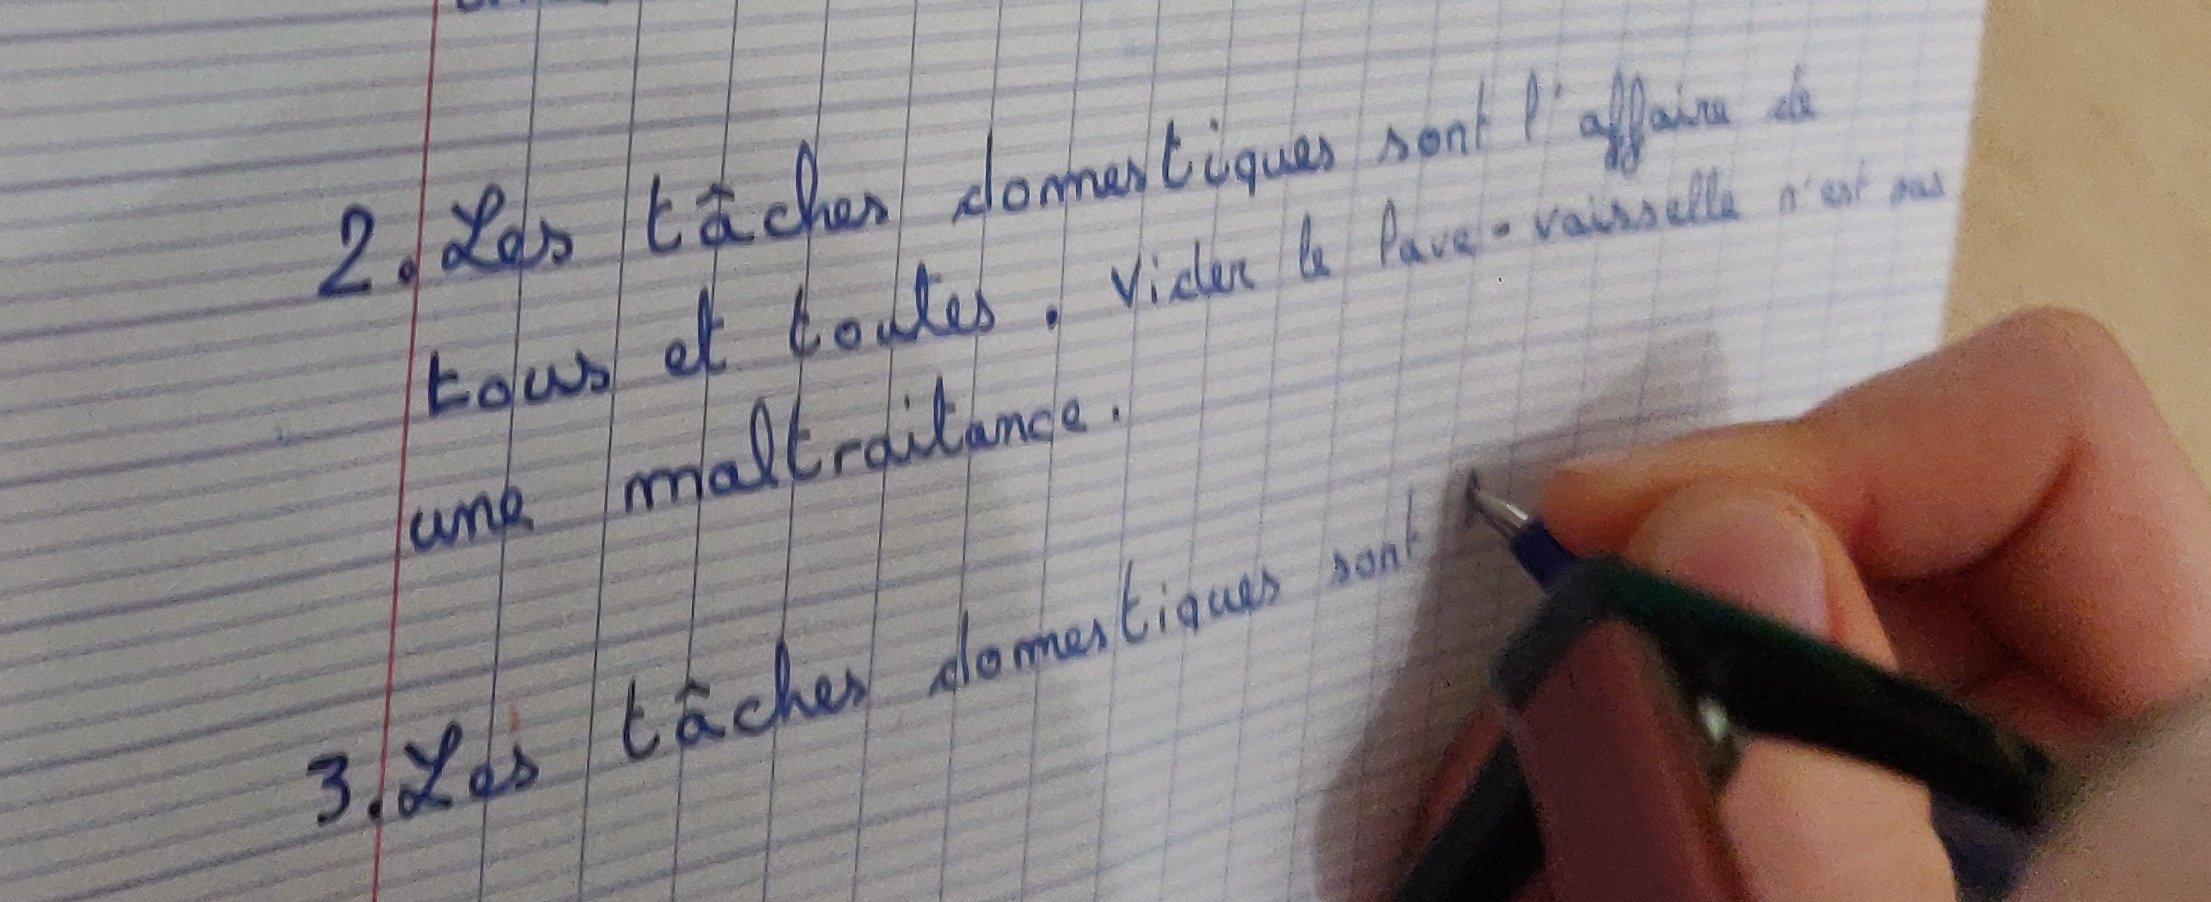 2. Les tâches domestiques sont l'affaire de
tous et toutes. Vider le lave-vaisselle n'est pas
une maltraitance.
3. Les tâches domestiques sont